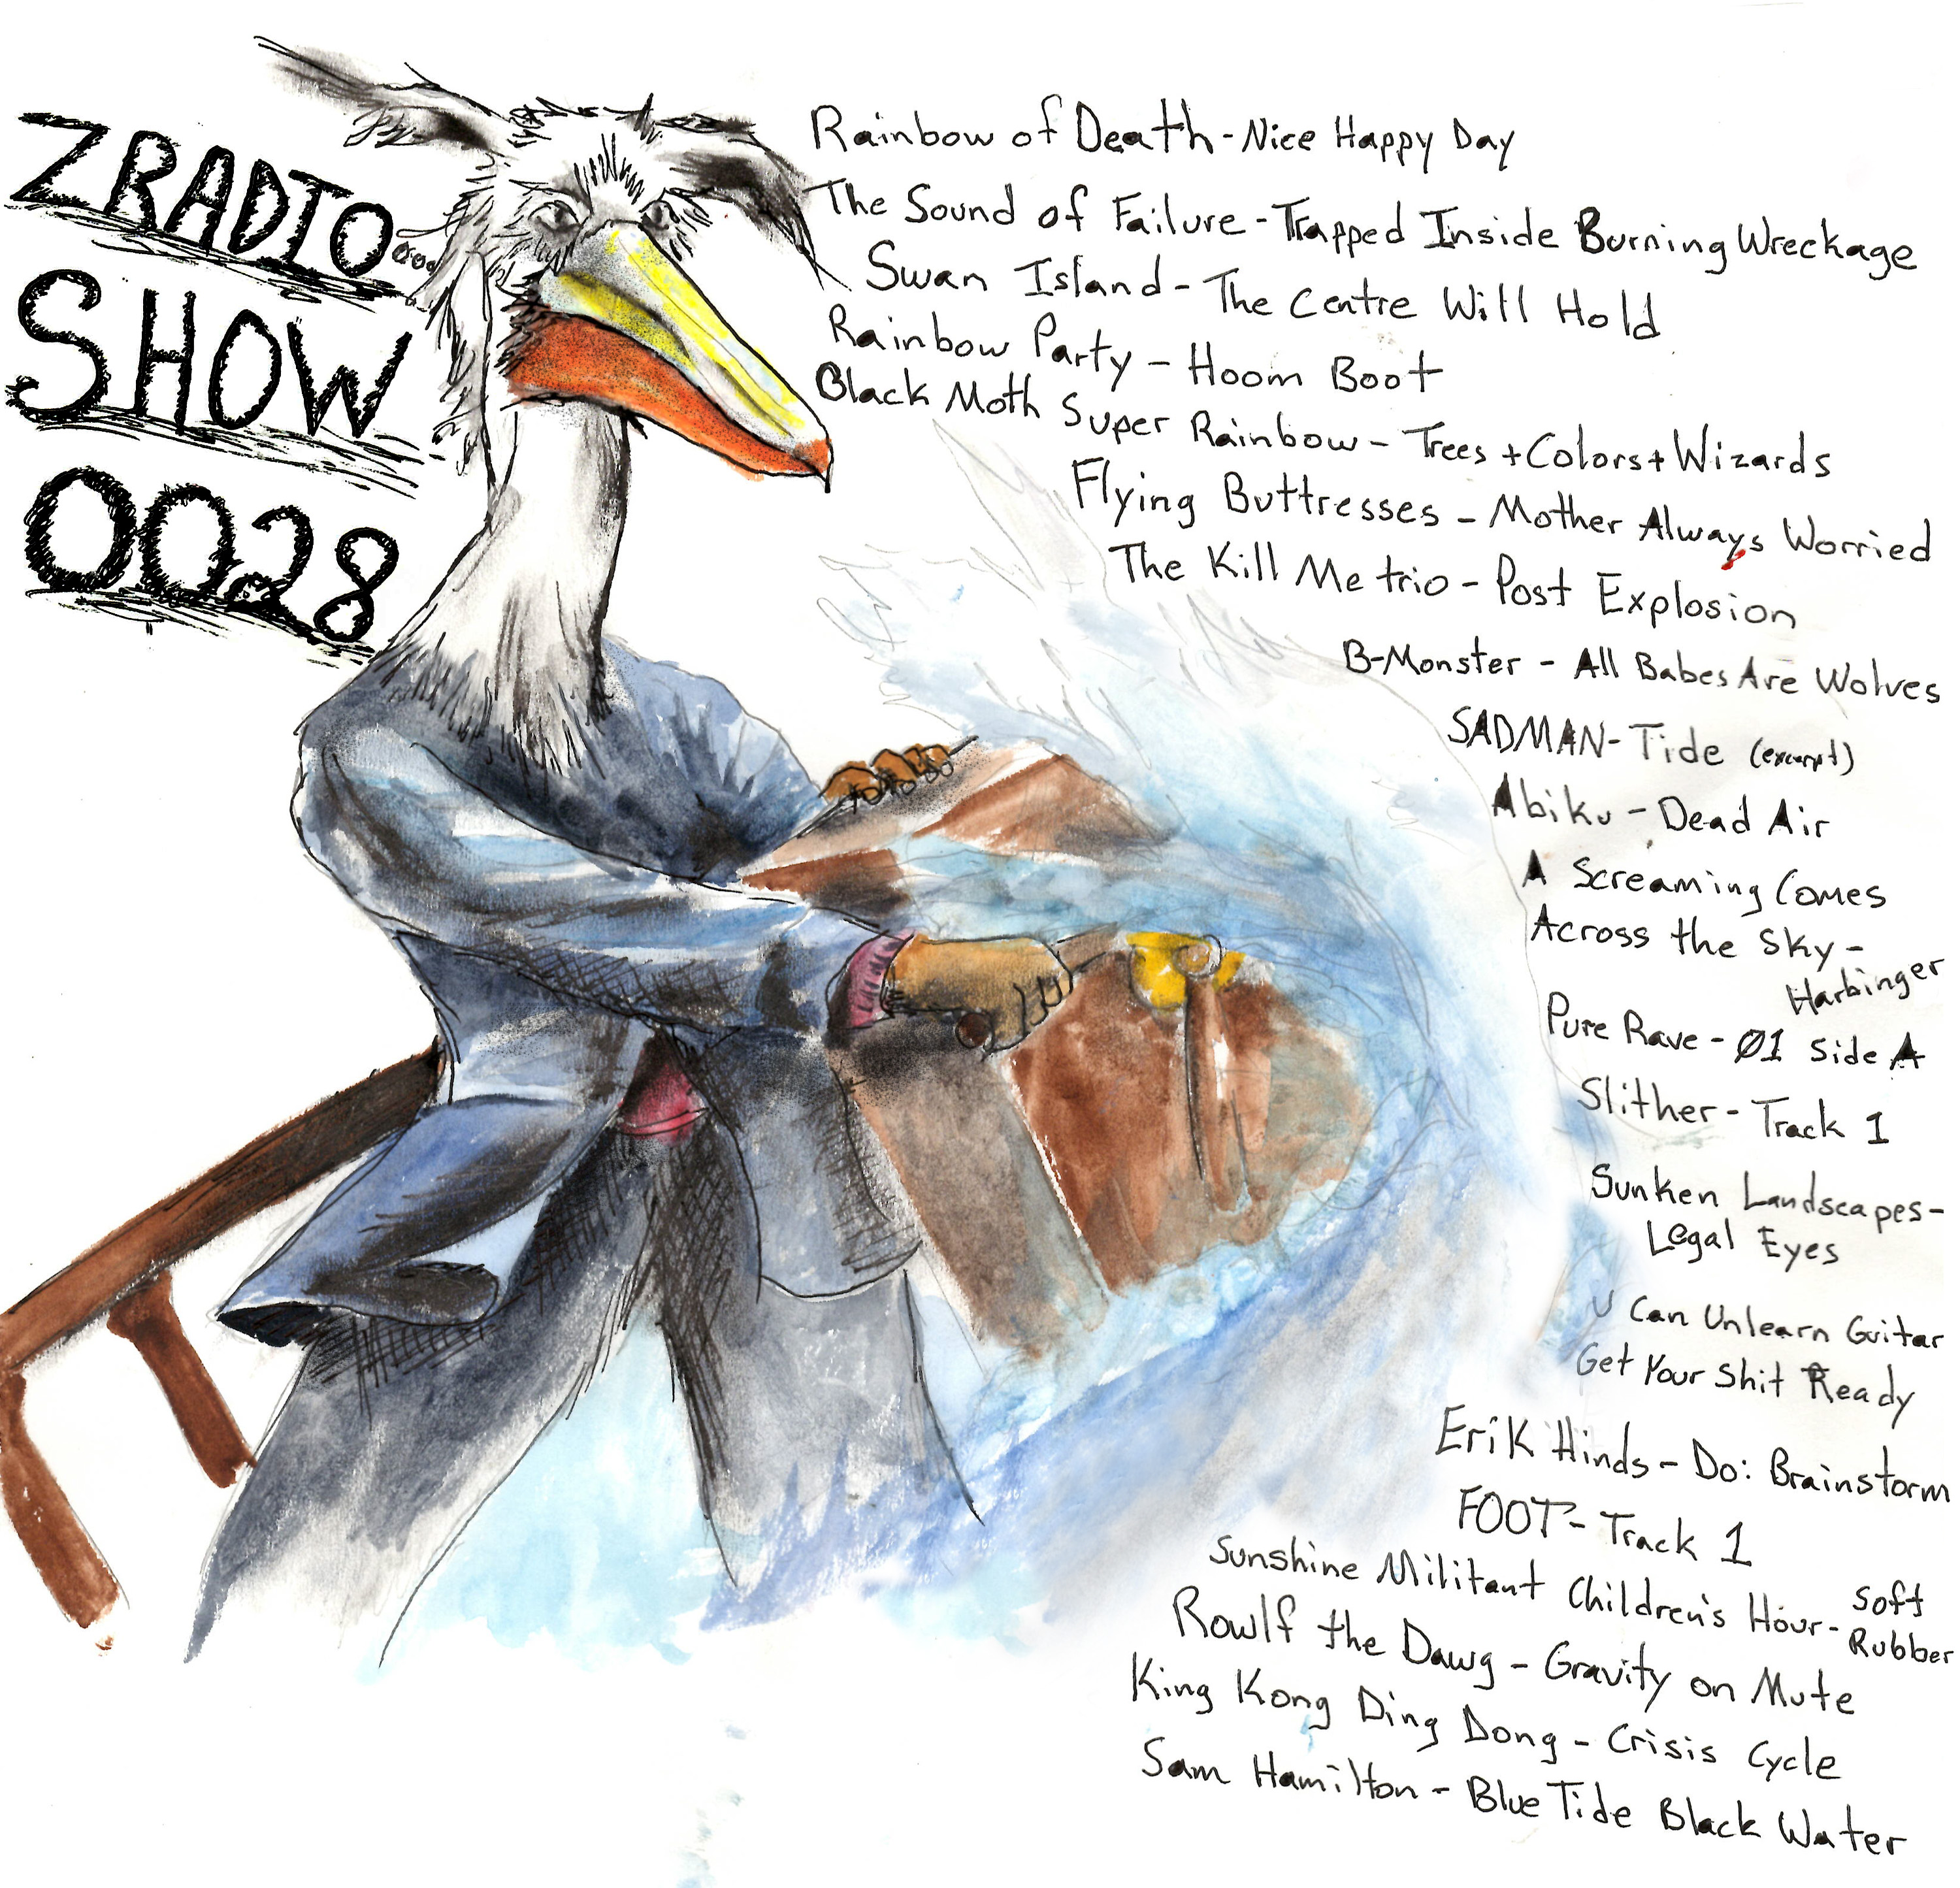 ZRADIO
SHOW
0028
Rainbow of Death - Nice Happy Day
The Sound of Failure - Trapped Inside Burning Wreckage
Swan Island - The Centre Will Hold
Rainbow Party - Hoom Boot
Black Moth Super Rainbow - Trees + Colors + Wizards
Flying Buttresses - Mother Always Worried
The Kill Me trio - Post Explosion
B-Monster - All Babes Are Wolves
SADMAN - Tide (excerpt)
Abiku - Dead Air
A Screaming Comes
Across the Sky -
Harbinger
Pure Rave - Ø1 Side A
Slither - Track 1
Sunken Landscapes -
Legal Eyes
U Can Unlearn Guitar
Get Your Shit Ready
Erik Hinds - Do: Brainstorm
FOOT - Track 1
Sunshine Militant Children's Hour - Soft
Rubber
Rowlf the Dawg - Gravity on Mute
King Kong Ding Dong - Crisis Cycle
Sam Hamilton - Blue Tide Black Water